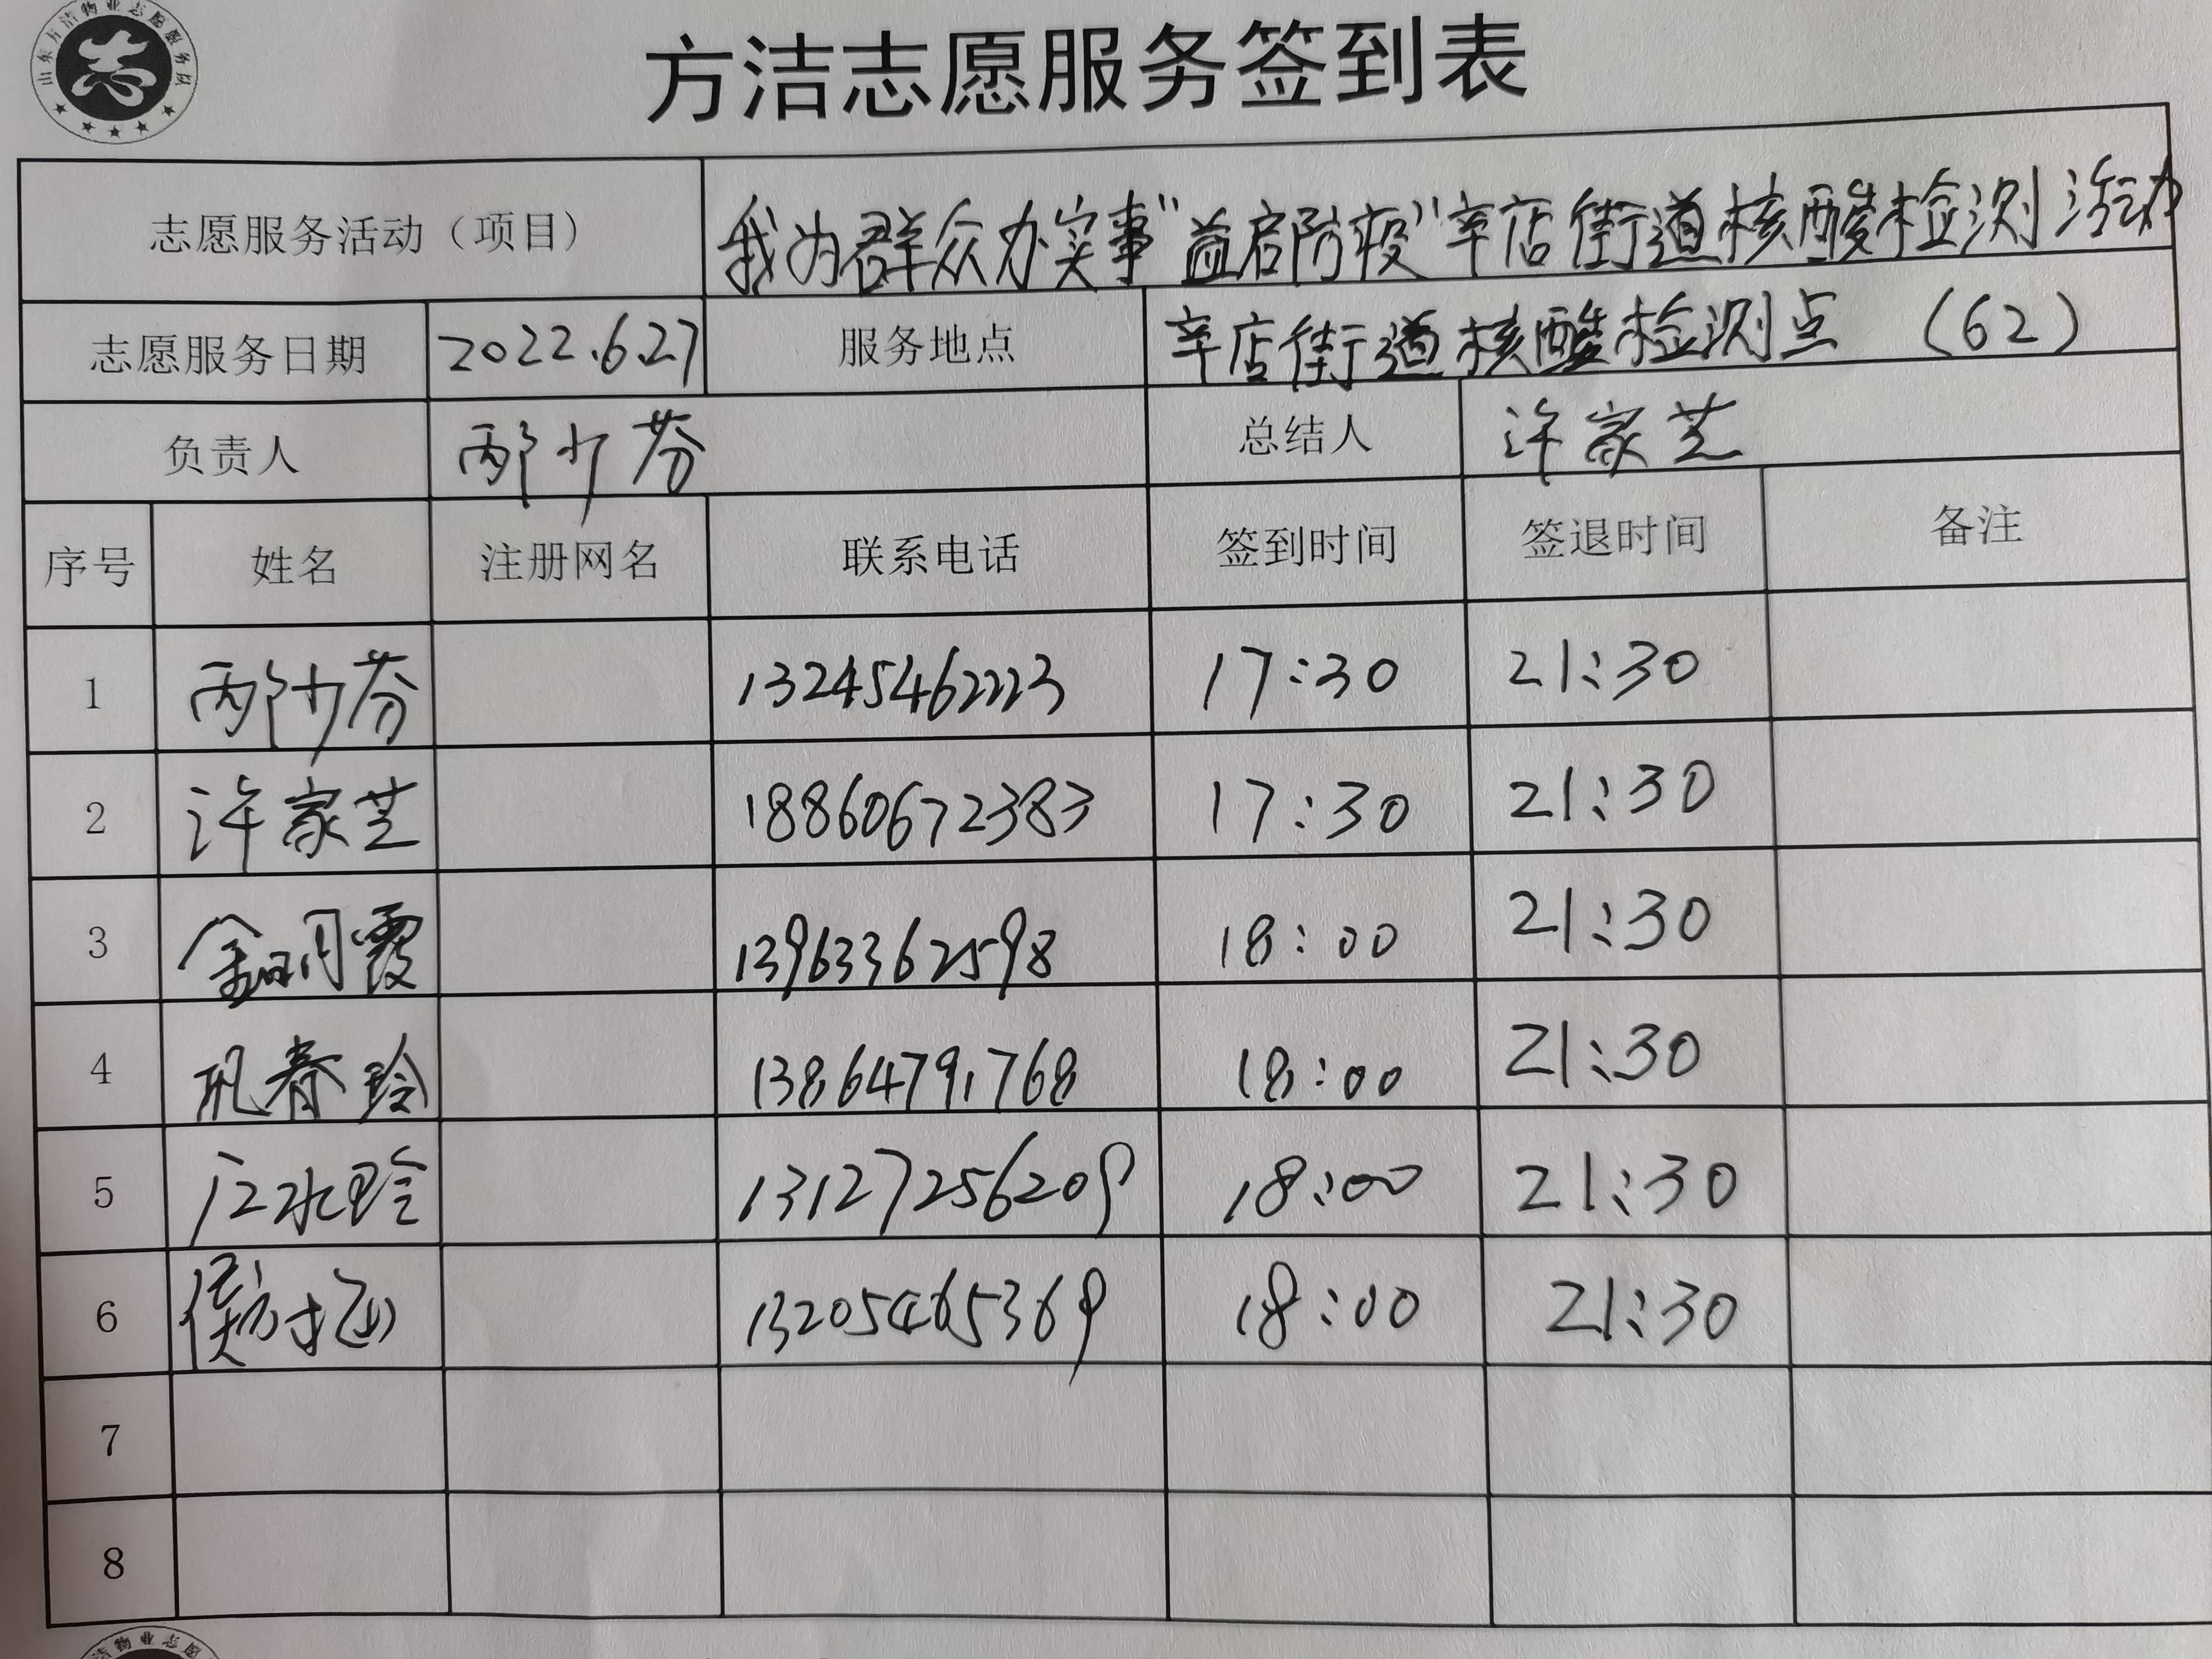 山东方洁物业志愿服务队
方洁志愿服务签到表
志愿服务活动（项目） 我为群众办实事"益启防疫"辛店街道核酸检测活动
志愿服务日期 2022.6.27 服务地点 辛店街道核酸检测点 (62)
负责人 邴少芬 总结人 许家芝
序号 姓名 注册网名 联系电话 签到时间 签退时间 备注
1 邴少芬 13245462223 17:30 21:30
2 许家芝 18860672383 17:30 21:30
3 金明霞 13963362598 18:00 21:30
4 巩春玲 13864791768 18:00 21:30
5 13127256209 18:00 21:30
6 13205465369 18:00 21:30
7
8
洁物业志愿